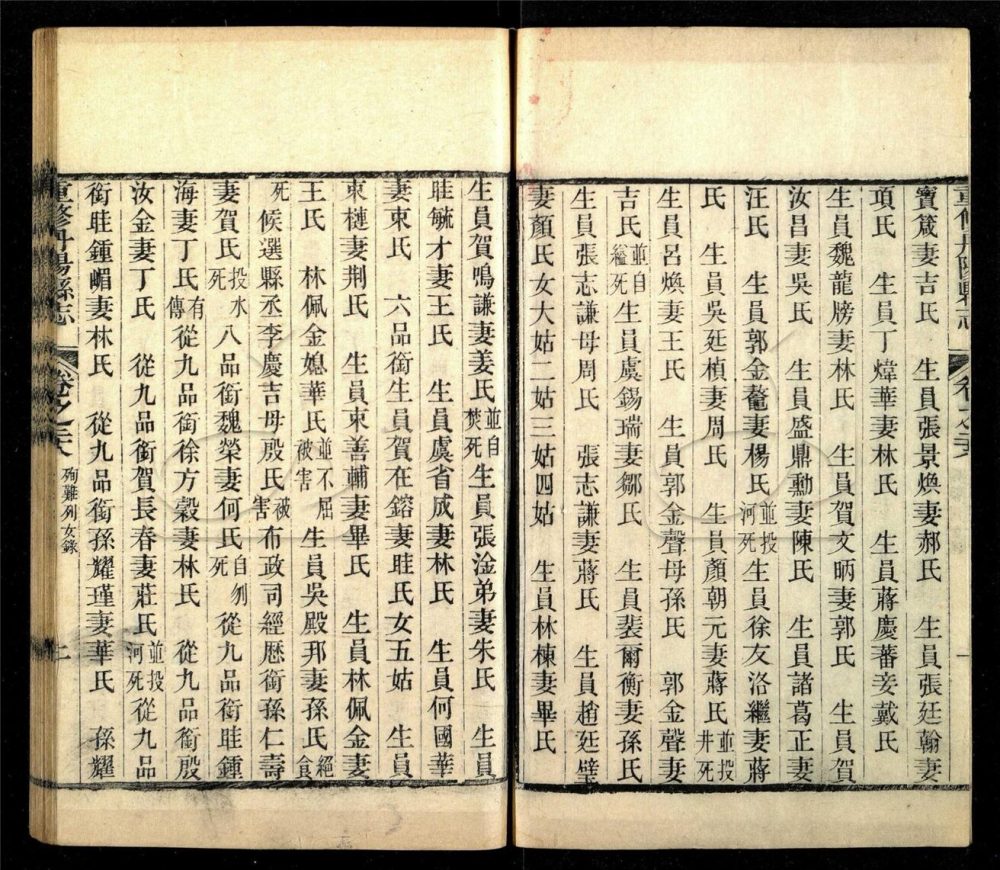 寶箴妻吉氏　生員張景煥妻郝氏　生員張廷翰妻
項氏　生員丁煒華妻林氏　生員蔣慶蕃妾戴氏
生員魏龍牓妻林氏　生員賀文昞妻郭氏　生員賀
汝昌妻吳氏　生員盛鼎勳妻陳氏　生員諸葛正妻
汪氏　生員郭金鼇妻楊氏並投河死生員徐友洛繼妻蔣
氏　生員吳廷楨妻周氏　生員顏朝元妻蔣氏並投井死
生員呂煥妻王氏　生員郭金聲母孫氏　郭金聲妻
吉氏並自縊死生員虞錫瑞妻鄒氏　生員裴爾衡妻孫氏
生員張志謙母周氏　張志謙妻蔣氏　生員趙廷璧
妻顏氏女大姑二姑三姑四姑　生員林棟妻畢氏
生員賀鳴謙妻姜氏並自焚死生員張淦弟妻朱氏　生員
眭毓才妻王氏　生員虞省成妻林氏　生員何國華
妻東氏　六品銜生員賀在鎔妻眭氏女五姑　生員
東槤妻荆氏　生員東善輔妻畢氏　生員林佩金妻
王氏　林佩金媳華氏並不屈被害　生員吳殿邦妻孫氏絕食
死候選縣丞李慶吉母殷氏被害布政司經歷銜孫仁壽
妻賀氏投水死八品銜魏榮妻何氏自刎死從九品銜眭鍾
海妻丁氏有傳從九品銜徐方穀妻林氏　從九品銜殷
汝金妻丁氏　從九品銜賀長春妻莊氏並投河死從九品
銜眭鍾嵋妻林氏　從九品銜孫耀瑾妻華氏　孫耀
重修丹陽縣志　卷之二十六　殉難列女錄　上